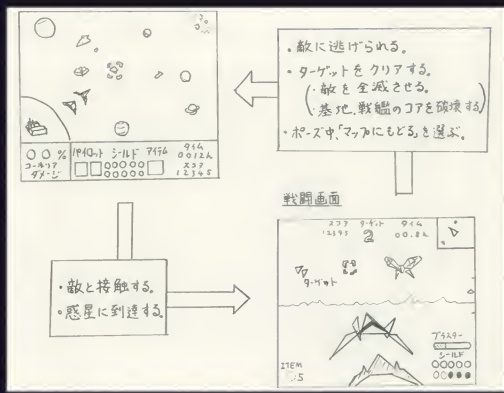 00%
コーネリア
ダメージ
パイロット シールド アイテム
タイム
スコア
12345
・敵に逃げられる。
・ターゲットをクリアする。
(・敵を全滅させる。
・基地、戦艦のコアを破壊する)
・ポーズ中、「マップにもどる」を選ぶ。
・敵と接触する。
・惑星に到達する。
戦闘画面
スコア ターゲット タイム
12345 2
ターゲット
ブラスター
シールド
ITEM
5